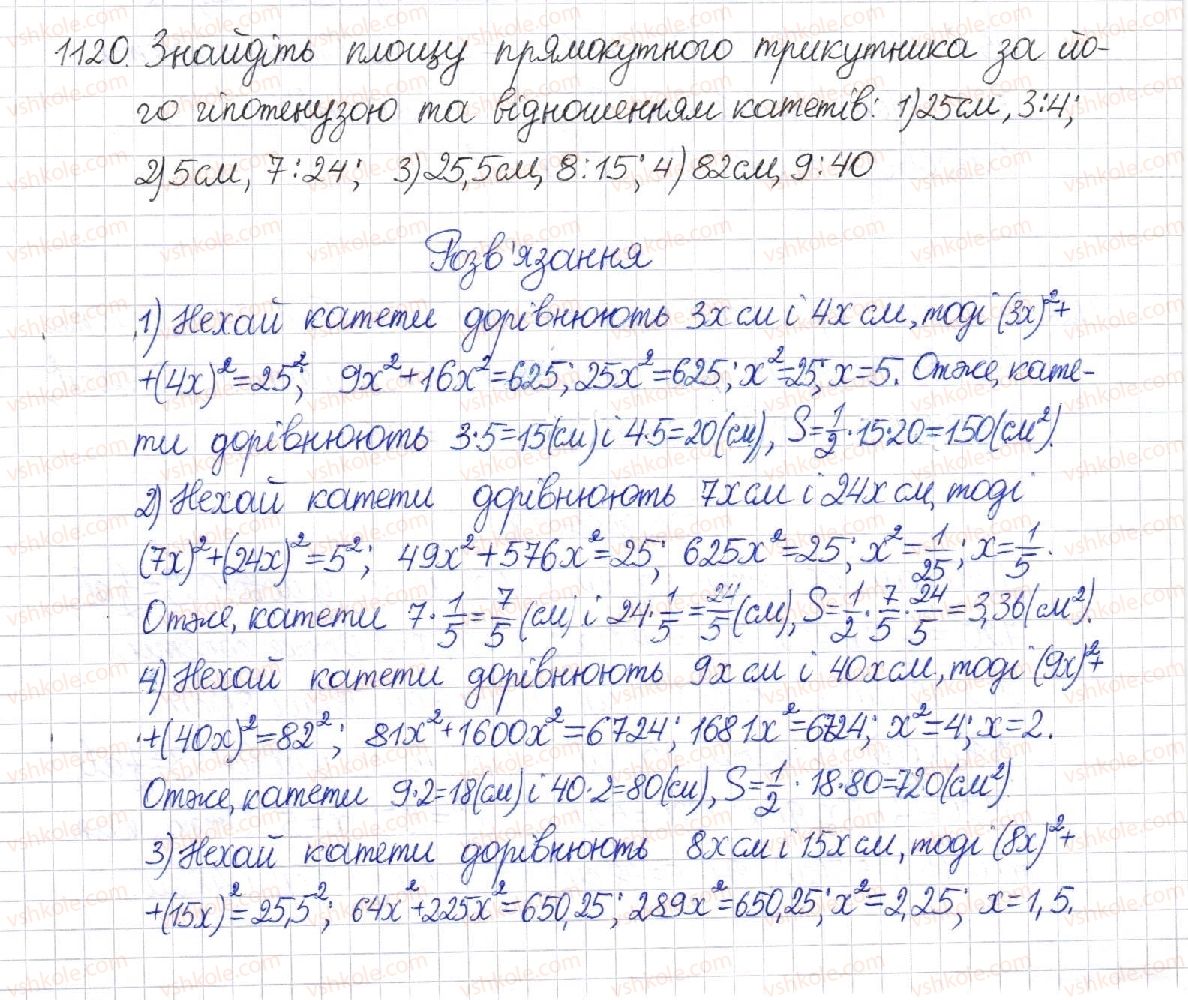 1120. Знайдіть площу прямокутного трикутника за йо-
го гіпотенузою та відношенням катетів: 1) 25см, 3:4;
2) 5см, 7:24; 3) 25,5см, 8:15; 4) 82см, 9:40
Розв'язання
1) Нехай катети дорівнюють 3х см і 4х см, тоді (3х)²+
+(4х)²=25²; 9х²+16х²=625; 25х²=625; х²=25; х=5. Отже, кате-
ти дорівнюють 3·5=15(см) і 4·5=20(см), S=1/2·15·20=150(см²).
2) Нехай катети дорівнюють 7х см і 24х см, тоді
(7х)²+(24х)²=5²; 49х²+576х²=25; 625х²=25; х²=1/25; х=1/5.
Отже, катети 7·1/5=7/5(см) і 24·1/5=24/5(см), S=1/2·7/5·24/5=3,36(см²).
4) Нехай катети дорівнюють 9х см і 40х см, тоді (9х)²+
+(40х)²=82²; 81х²+1600х²=6724; 1681х²=6724; х²=4; х=2.
Отже, катети 9·2=18(см) і 40·2=80(см), S=1/2·18·80=720(см²)
3) Нехай катети дорівнюють 8х см і 15х см, тоді (8х)²+
+(15х)²=25,5²; 64х²+225х²=650,25; 289х²=650,25; х²=2,25; х=1,5.